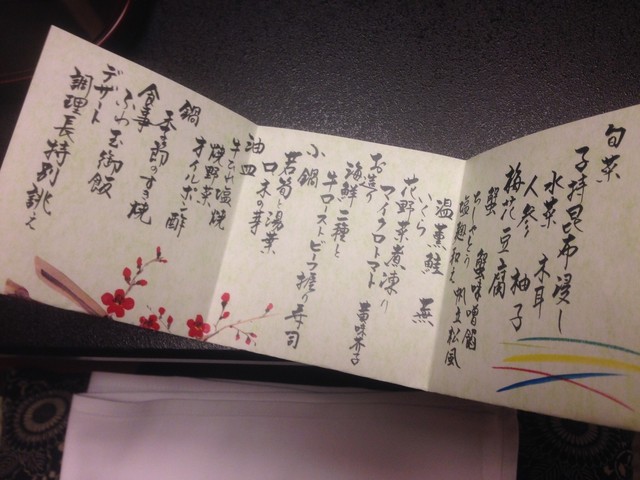 旬菜
子持昆布浸し
水菜 木耳
人参 柚子
梅花豆腐
蟹 蟹味噌餡
ちしゃとう
塩麹和え 帆立松風
いくら
温燻鮭 蕪
花野菜煮凍り
マイクロトマト
お造り
海鮮二種と
牛ローストビーフ握り寿司
小鍋
若筍と湯葉
木の芽
油皿
牛とれ塩焼
焼野菜
オイルポン酢
鍋
季節のすき焼
食事
ふわ玉御飯
デザート
調理長特別誂え